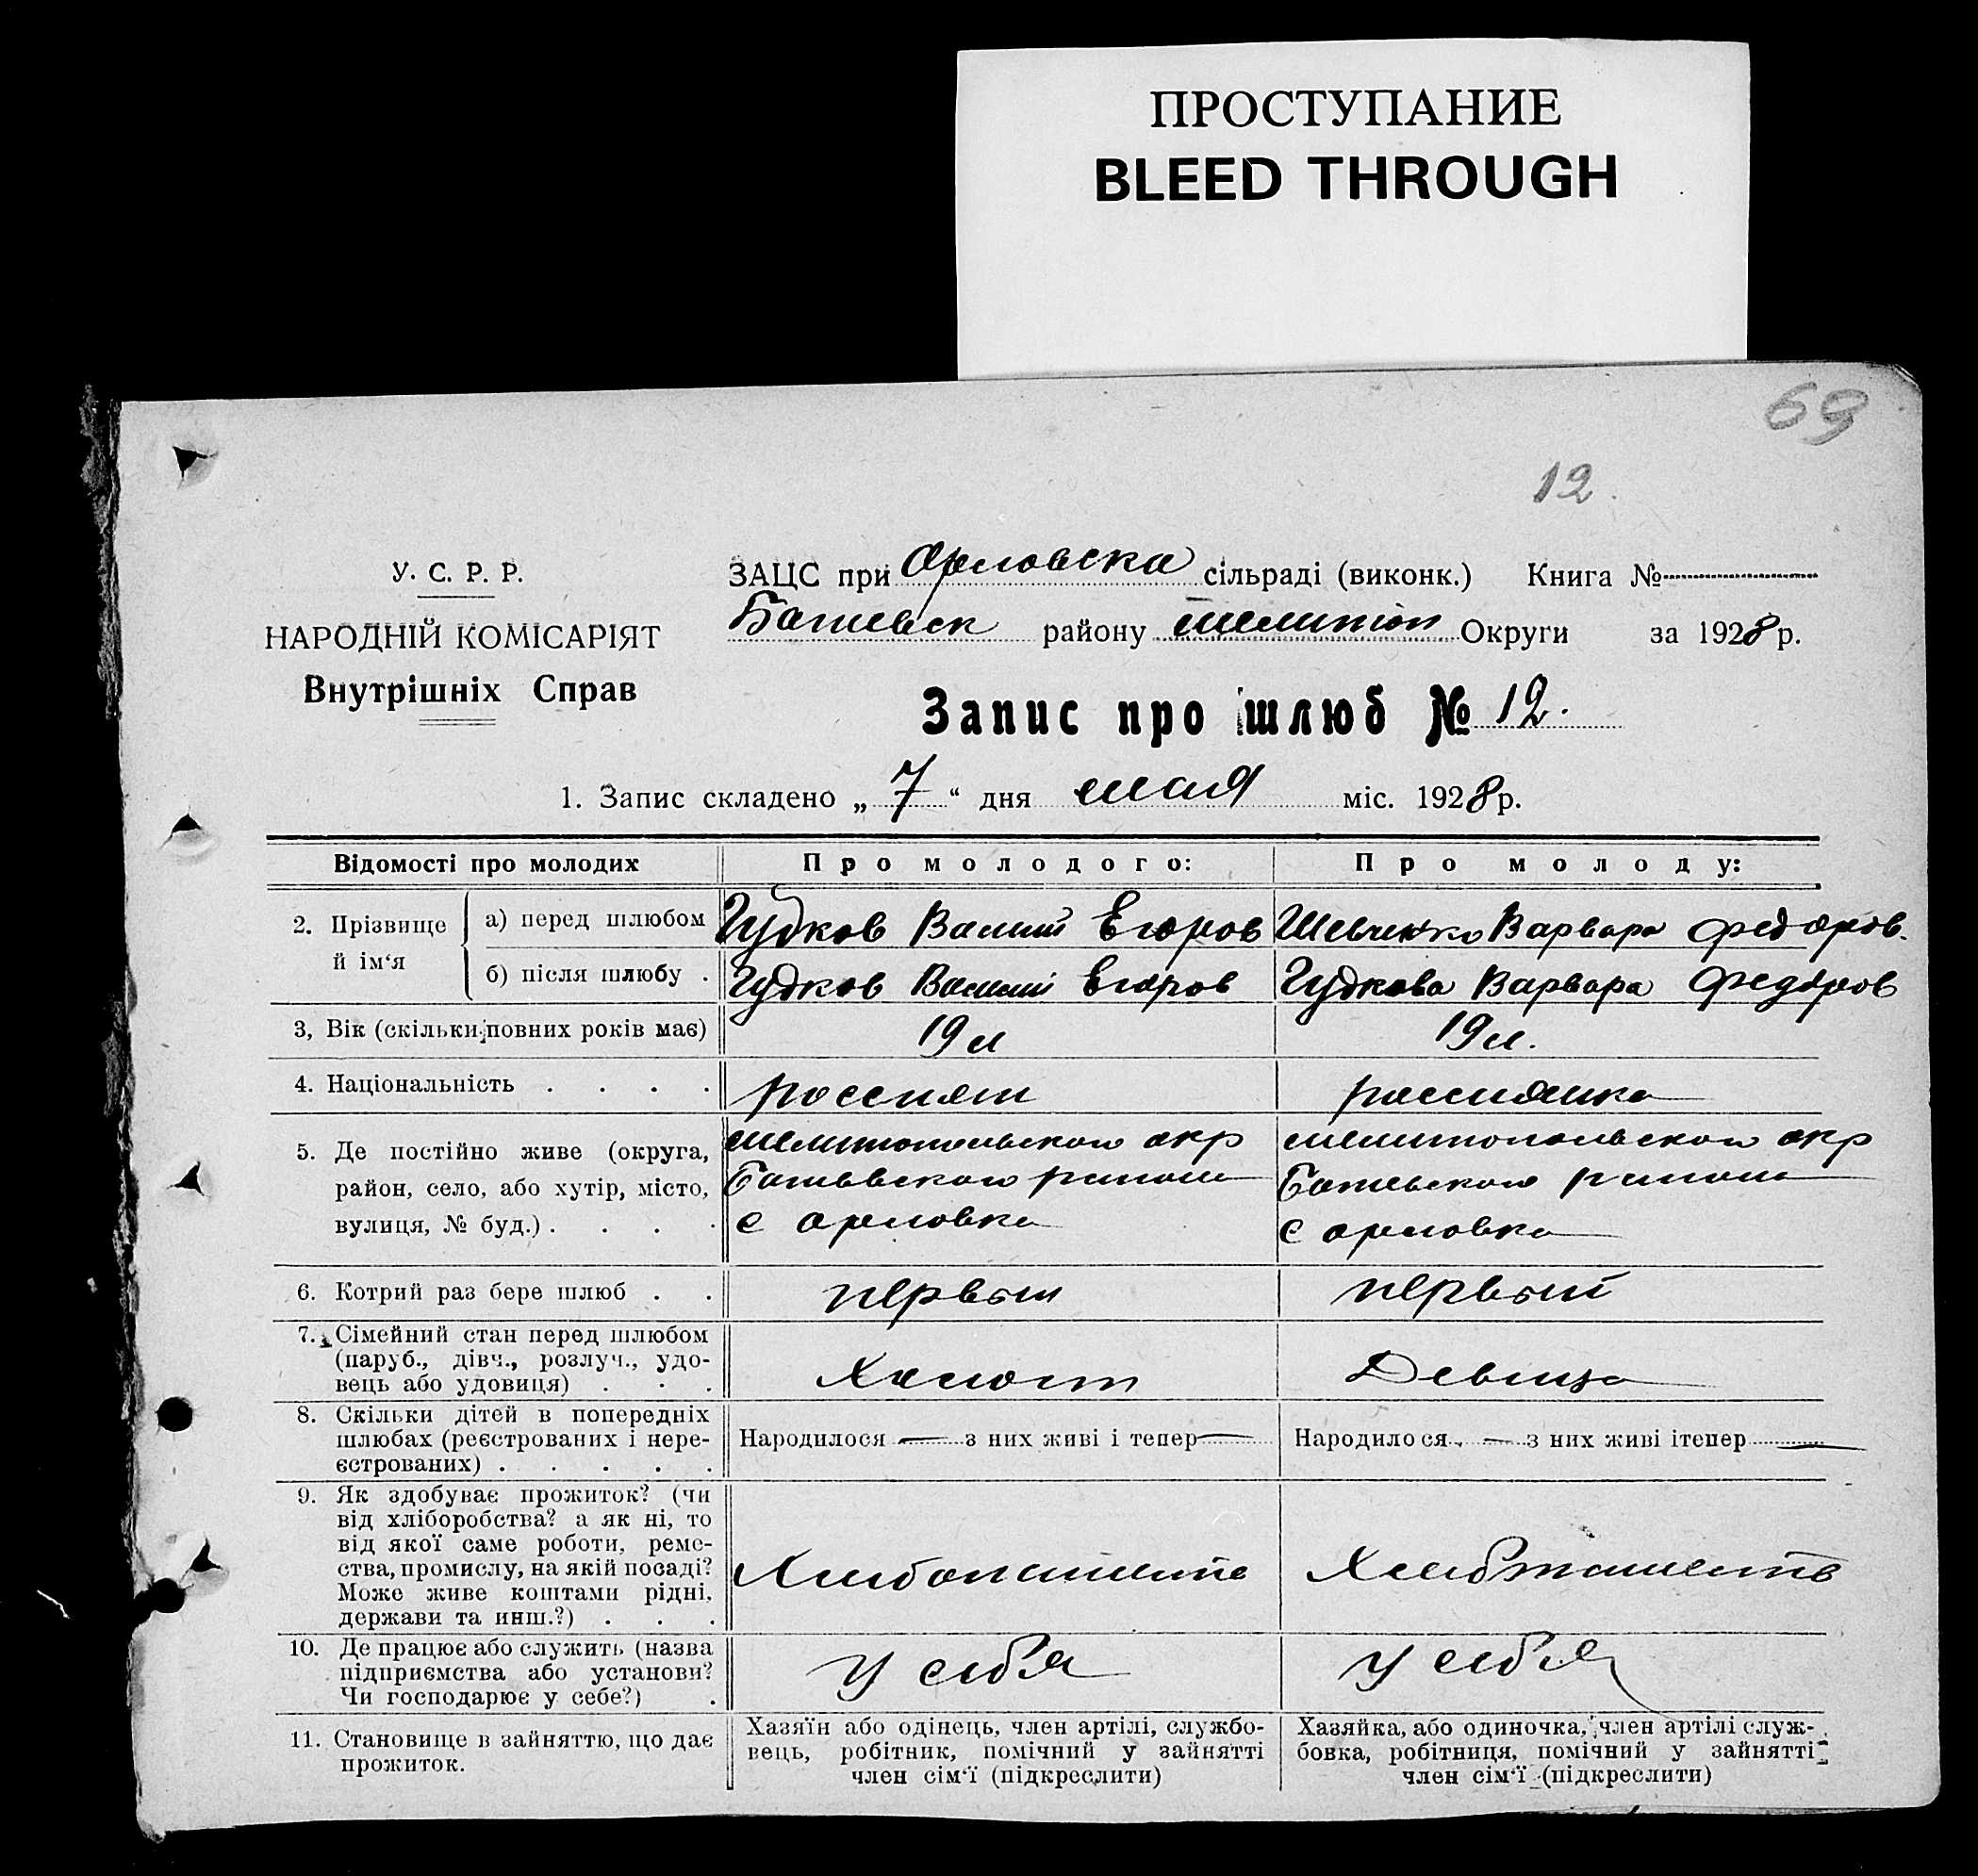 ПРОСТУПАНИЕ
BLEED THROUGH
69
12.
У. С. Р. Р.
НАРОДНІЙ КОМІСАРІЯТ
Внутрішніх Справ
ЗАЦС при Орловска сільраді (виконк.) Книга №
району Мелитоп Округи за 1928 р.
Запис про шлюб № 12.
1. Запис складено „ 7 “ дня мая міс. 1928 р.
Відомості про молодих
Про молодого:
Про молоду:
2. Прізвище й ім‘я
а) перед шлюбом
Гудков Васили Егоров
Шевченко Варвара Федоров.
б) після шлюбу .
Гудков Васили Егоров
Гудкова Варвара Федоров
3, Вік (скільки повних років має)
19 л
19 л.
4. Національність . . . .
россиян
россиянка
5. Де постійно живе (округа,
район, село, або хутір, місто,
вулиця, № буд.) . . . .
Мелитопольского окр
района
с Орловка
Мелитопольского окр
района
с Орловка
6. Котрий раз бере шлюб . .
первый
первый
7. Сімейний стан перед шлюбом
(паруб., дівч., розлуч., удо-
вець або удовиця) . . .
Холост
Девица
8. Скільки дітей в попередніх
шлюбах (реєстрованих і нере-
єстрованих) . . . . .
Народилося — з них живі і тепер —
Народилося — з них живі ітепер —
9. Як здобуває прожиток? (чи
від хліборобства? а як ні, то
від якої саме роботи, реме-
ства, промислу, на якій посаді?
Може живе коштами рідні,
держави та инш.?) . . .
10. Де працює або служить (назва
підприємства або установи?
Чи господарює у себе?) .
у себя
у себя
11. Становище в зайняттю, що дає
прожиток.
Хазяїн або одінець, член артілі, службо-
вець, робітник, помічний у зайнятті
член сім‘ї (підкреслити)
Хазяйка, або одиночка, член артілі служ-
бовка, робітниця, помічний у зайнятті
член сім‘ї (підкреслити)